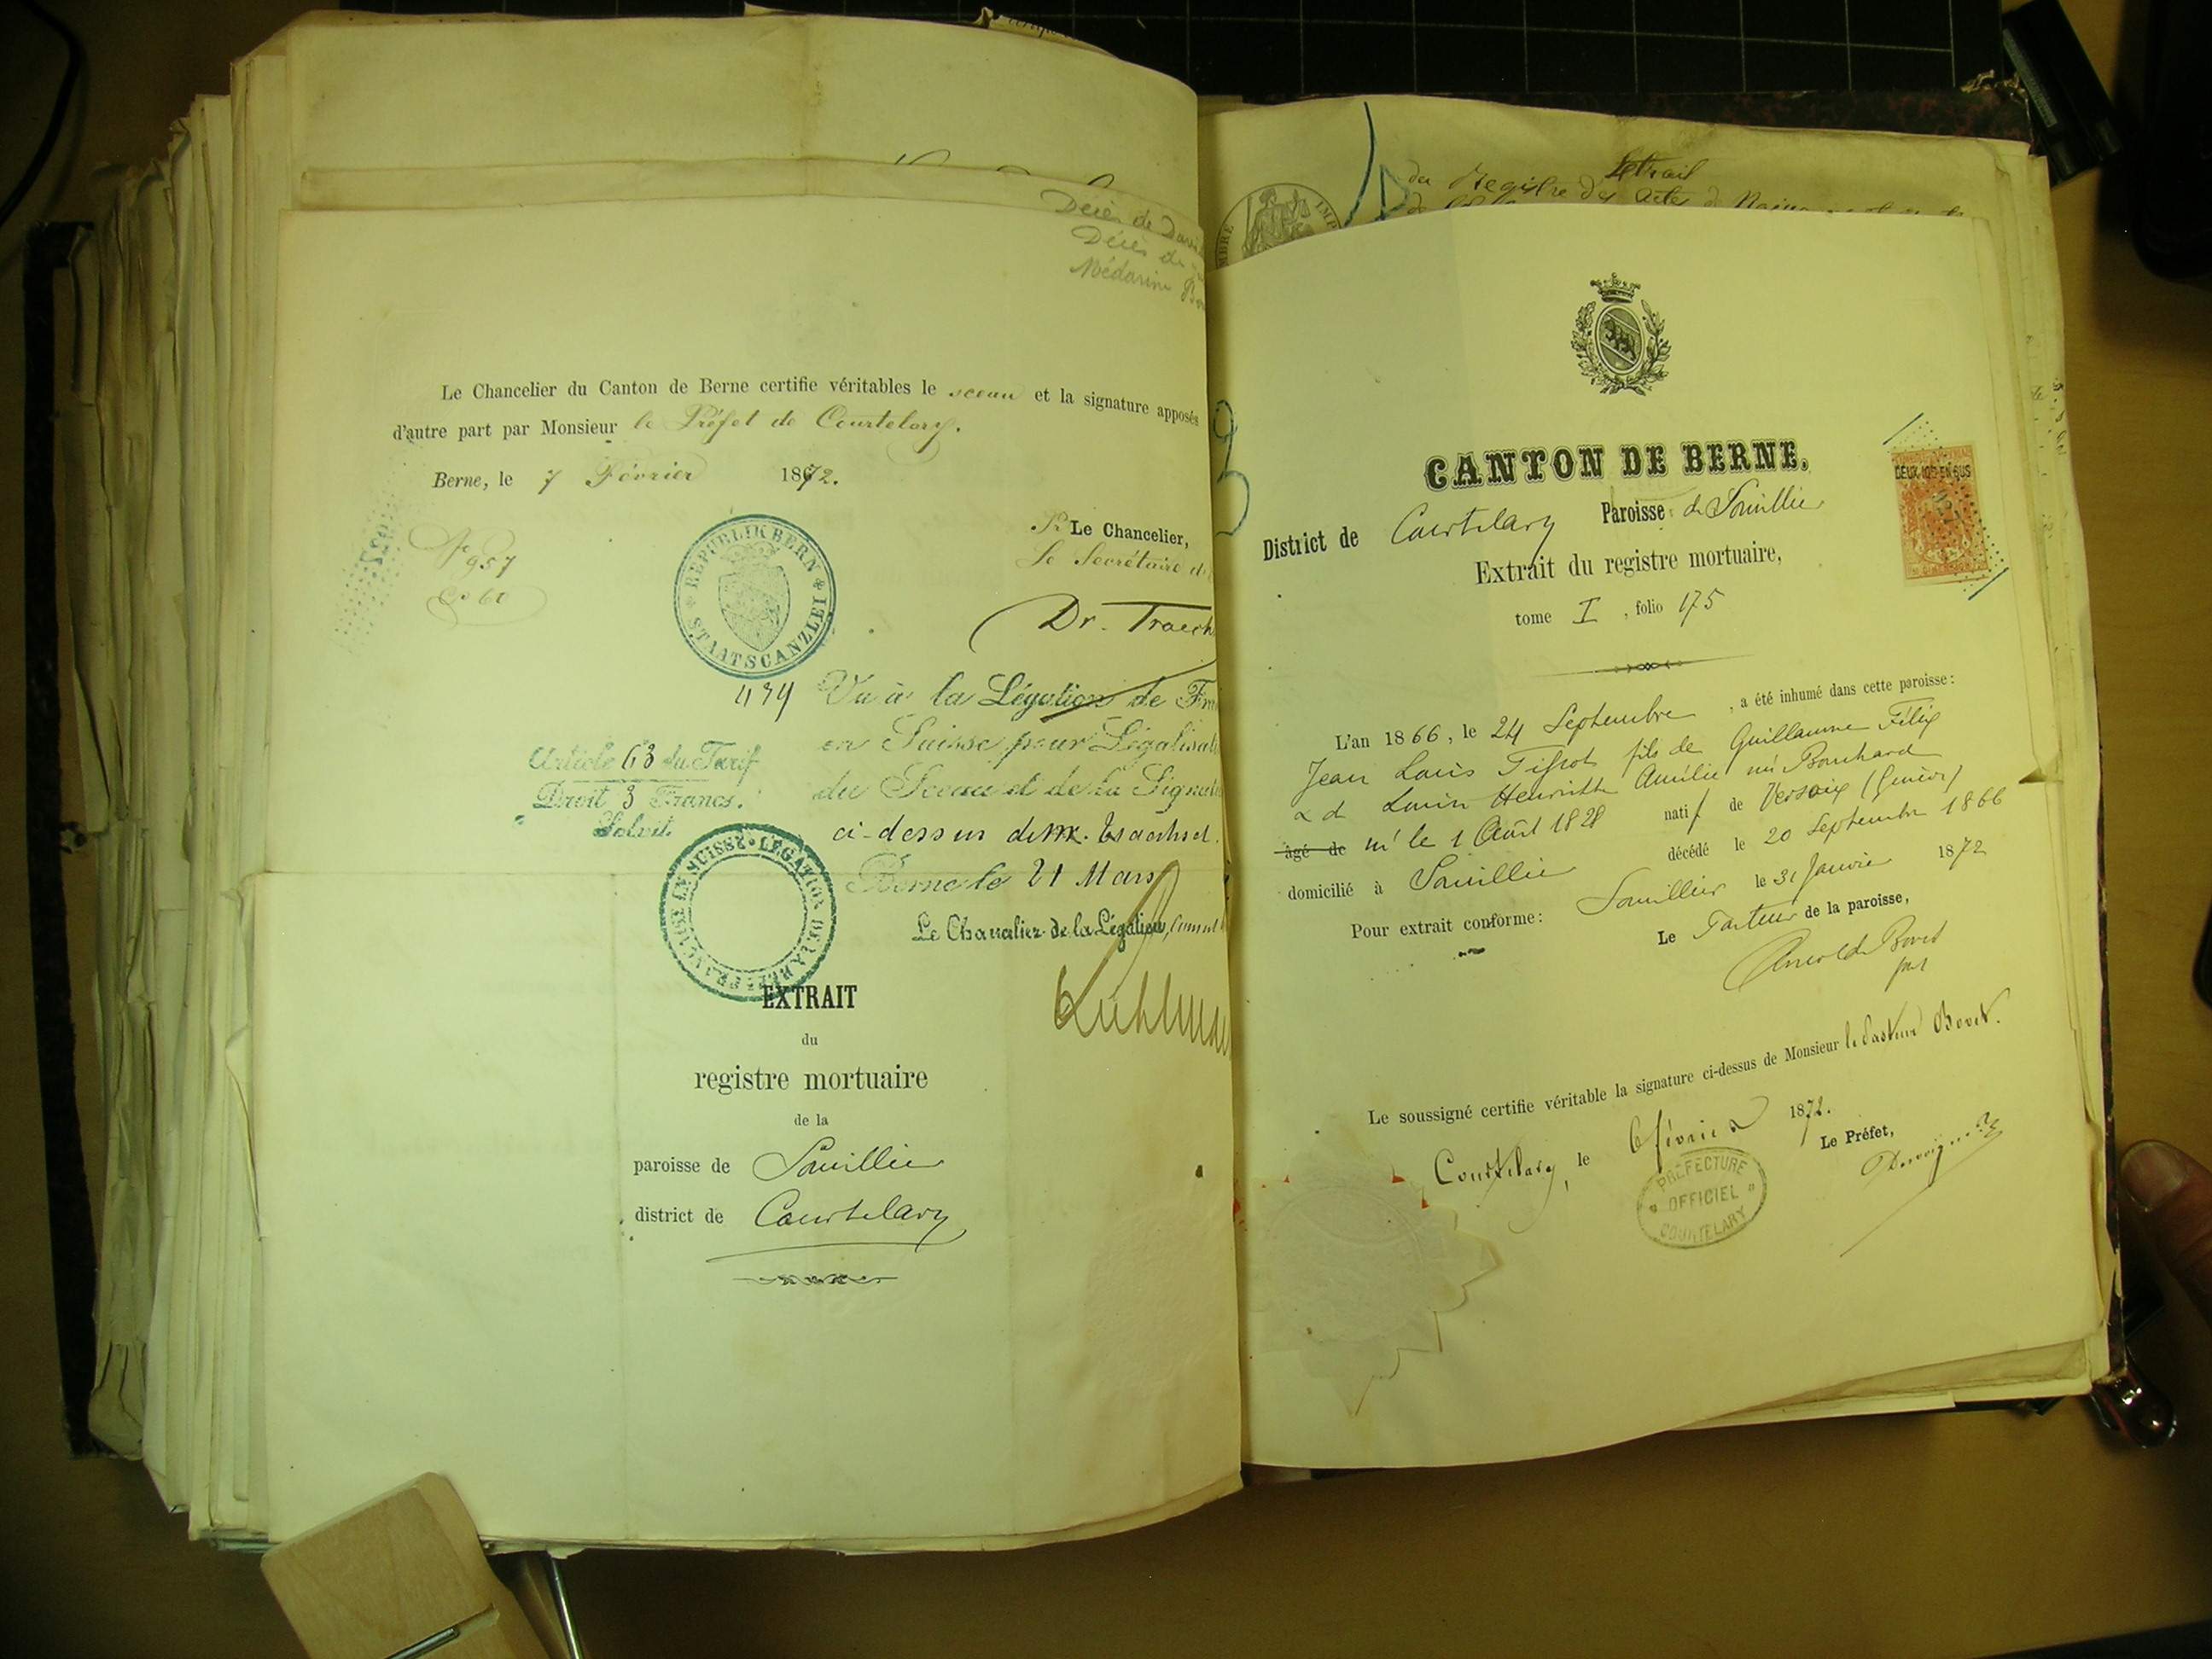 Décès de
Décès de
Médarine
Le Chancelier du Canton de Berne certifie véritables le sceau et la signature apposés
d'autre part par Monsieur le Préfet de Courtelary.
Berne, le 7 Février 1872.
No 957
Co 60
REPUBLIK BERN
STAATSCANZLEI
Pr Le Chancelier,
Le Secrétaire
Dr. Traech
434 Vu à la Légation de
en Suisse pour
du Sceau et de la
ci-dessus de M.
Article 63 du Tarif
Droit 3 Francs.
Solvit.
Berne le 21 Mars
Le Chancelier de la Légation,
LEGATION DE LA REP. FRANÇAISE EN SUISSE
EXTRAIT
du
registre mortuaire
de la
paroisse de Sonvillier
district de Courtelary
Extrait
du Registre des Actes de
CANTON DE BERNE.
DEUX 10es EN SUS
District de Courtelary Paroisse de Sonvillier
Extrait du registre mortuaire,
tome I, folio 175
L'an 1866, le 24 Septembre, a été inhumé dans cette paroisse:
Jean Louis Tissot fils de Guillaume Félix
& d Louise Henriette Amélie née Bouchard
âgé de né le 1 Août 1828 natif de Versoix (Genève)
domicilié à Sonvillier décédé le 20 Septembre 1866
Pour extrait conforme: Sonvillier le 31 Janvier 1872
Le Pasteur de la paroisse,
Arnold Bovet
past
Le soussigné certifie véritable la signature ci-dessus de Monsieur le Pasteur Bovet.
Courtelary, le 6 février 1872.
Le Préfet,
PRÉFECTURE
OFFICIEL
COURTELARY